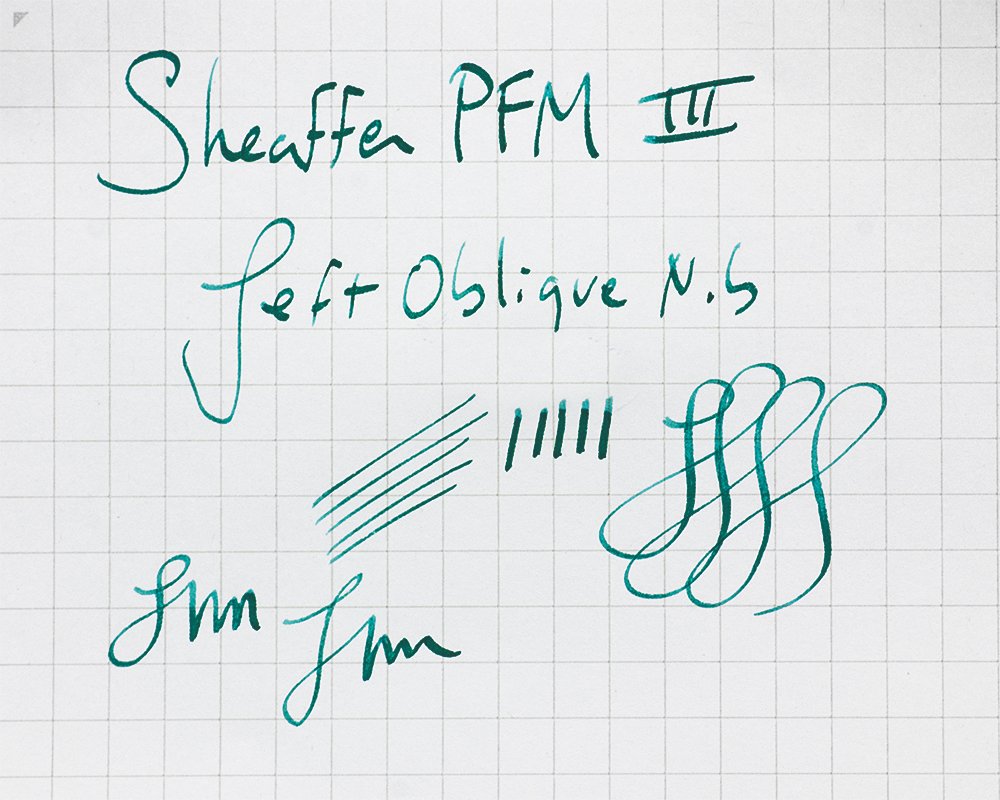 Sheaffer PFM III
Left Oblique Nib